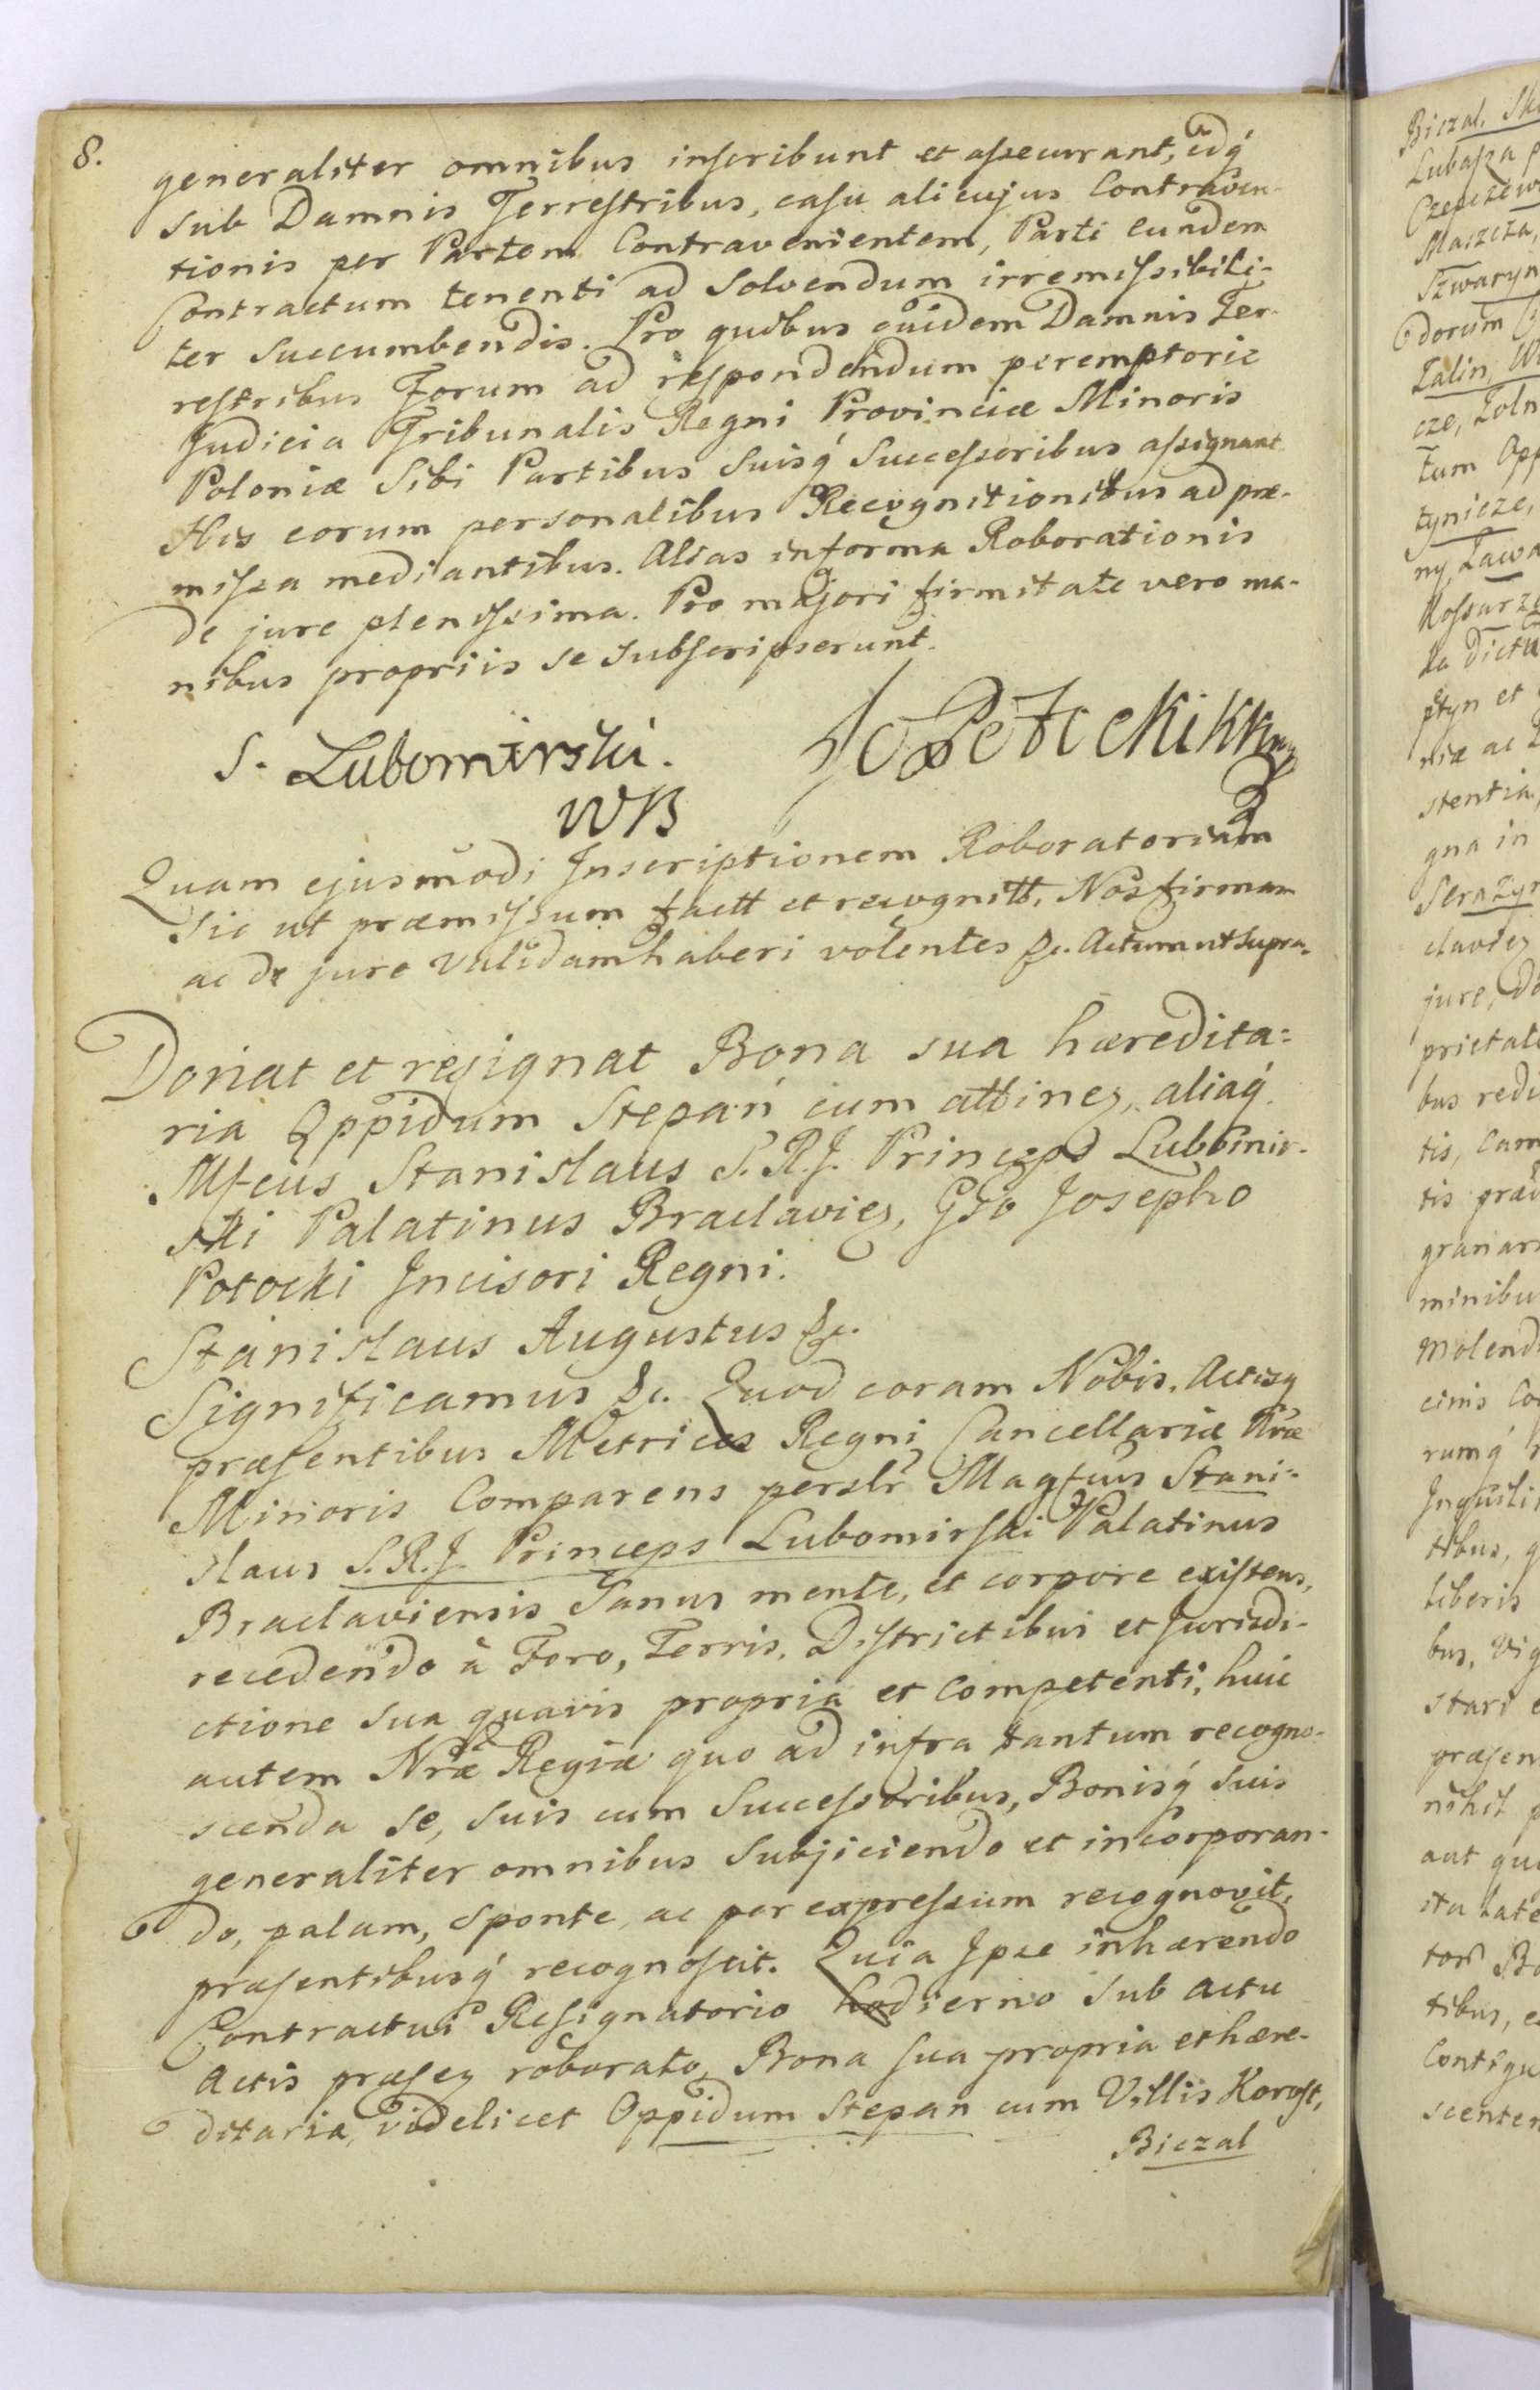 8.
generaliter omnibus inscribunt et assecurant, idq́
sub Damnis Terrestribus, casu alicujus Contraven-
tionis per Partem Contravenientem, Parti eundem
Contractum tenenti ad solvendum irremissibili-
ter succumbendis. Pro quibus quidem Damnis Ter-
restribus Forum ad respondendum peremptorie
Judicia Tribunalis Regni Provinciæ Minoris
Poloniæ Sibi Partibus suisq́ Successoribus assignant.
His eorum personalibus Recognitionibus ad præ-
missa mediantibus. Alias in forma Roborationis
de jure plenissima. Pro majori firmitate vero ma-
nibus propriis se subscripserunt.
S. Lubomirski. Jo Potocki KK
WB
Quam ejusmodi Inscriptionem Roboratoriam
sic ut præmissum factt et recognitt. Nos firmam
ac de jure validam haberi volentes &c. Actum ut supra.
Donat et resignat Bona sua hæredita=
ria Oppidum Stepań cum attinez, aliaq́
Mfcus Stanislaus S. R. J. Princeps Lubomir-
ski Palatinus Braclaviez, Gso Josepho
Potocki Incisori Regni.
Stanislaus Augustus &c.
Significamus &c. Quod coram Nobis, Actisq
præsentibus Metrices Regni Cancellariæ Nræ
Minoris Comparens perslr Magfcus Stani=
slaus S. R. J. Princeps Lubomirski Palatinus
Braclaviensis Sanus mente, et corpore existens,
recedendo à Foro, Terris, Districtibus et Jurisdi-
ctione sua quavis propria et competenti, huic
autem Nræ Regiæ quo ad infra tantum recogno-
scenda se, suis cum Successoribus, Bonisq́ suis
generaliter omnibus subjiciendo et incorporan-
do, palam, sponte, ac per expressum recognovit,
præsentibusq́ recognoscit. Quia Ipse inhærendo
Contractui Resignatorio hodierno sub actu
Actis præsez roborato, Bona sua propria et hære-
ditaria, videlicet Oppidum Stepan cum Villis Korost,
Biczal
Biczal,
Lubasza
Maszcza,
Szwaryn
dorum
Zalin,
cze, Zoln
tum Opp
tynicze,
ny, Lawa
Kossarze
ka dicta
ptyn et
niæ ac
stentia
gna in
claviez
jure, Do
prietate
bus redi
tis, Cam
tis prad
granar
minibus
Molend
cinis
rumq́
Inquili
tibus, q
liberis
bus, vig
stari e
præsen
nihil p
aut qu
ita late
tibus, e
Contigu
scenter